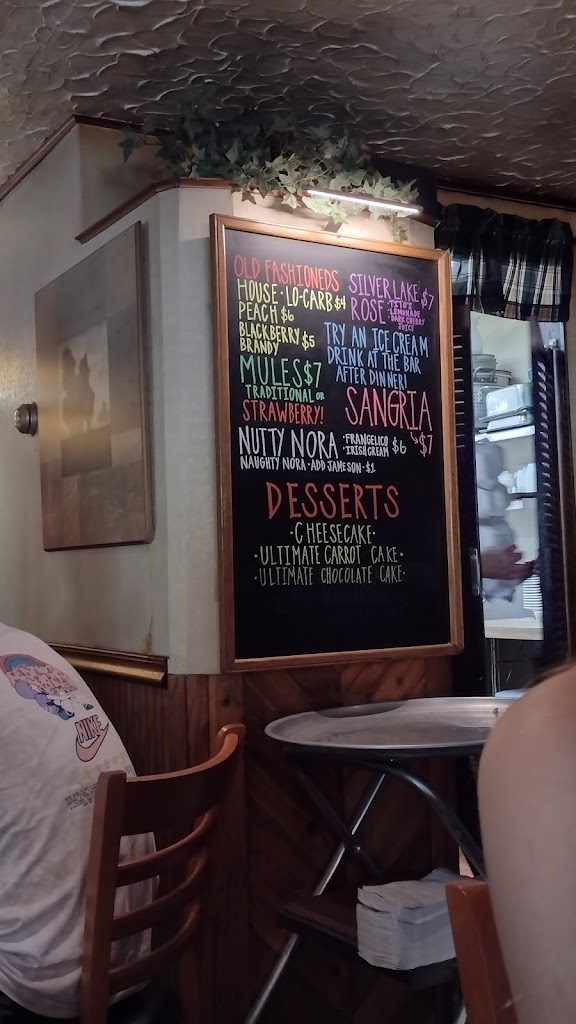 OLD FASHIONEDS
HOUSE · LO-CARB $4
PEACH $6
BLACKBERRY $5
BRANDY
MULES $7
TRADITIONAL OR
STRAWBERRY!
SILVER LAKE $7
ROSE · TITO'S
· LEMONADE
· DARK CHERRY
JUICE
TRY AN ICE CREAM
DRINK AT THE BAR
AFTER DINNER!
SANGRIA
$7
NUTTY NORA · FRANGELICO $6
· IRISH CREAM
NAUGHTY NORA · ADD JAMESON · $1
DESSERTS
· CHEESECAKE ·
· ULTIMATE CARROT CAKE ·
· ULTIMATE CHOCOLATE CAKE ·
NIKE